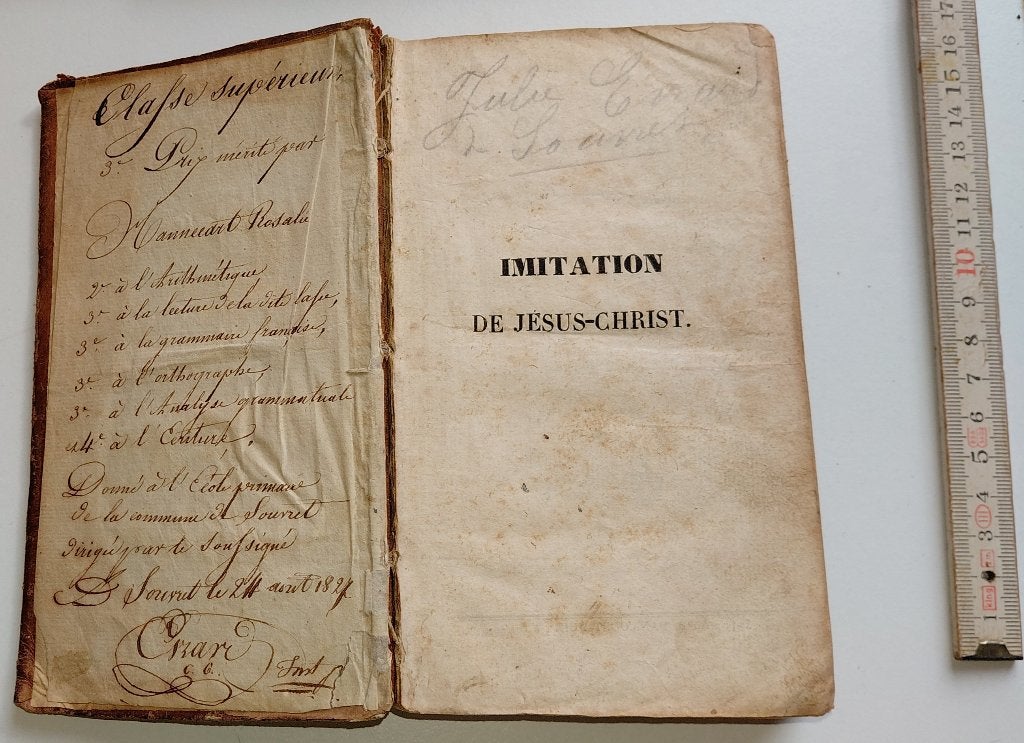 Classe supérieur,
3e Prix mérité par
Hannecart Rosalie
2e à l'Arithmétique
3e à la lecture de la dite classe,
3e à la grammaire française,
3e à l'orthographe,
3e à l'Analyse grammaticale
4e à l'Ecriture,
Donné à l'Ecole primaire
de la commune de Souvret
dirigée par le soussigné
Souvret le 24 août 1827
Erard
Inst
Julie Erard
de Souvret
IMITATION
DE JÉSUS-CHRIST.
17
16
15
14
13
12
11
10
9
8
7
6
5
4
3
1